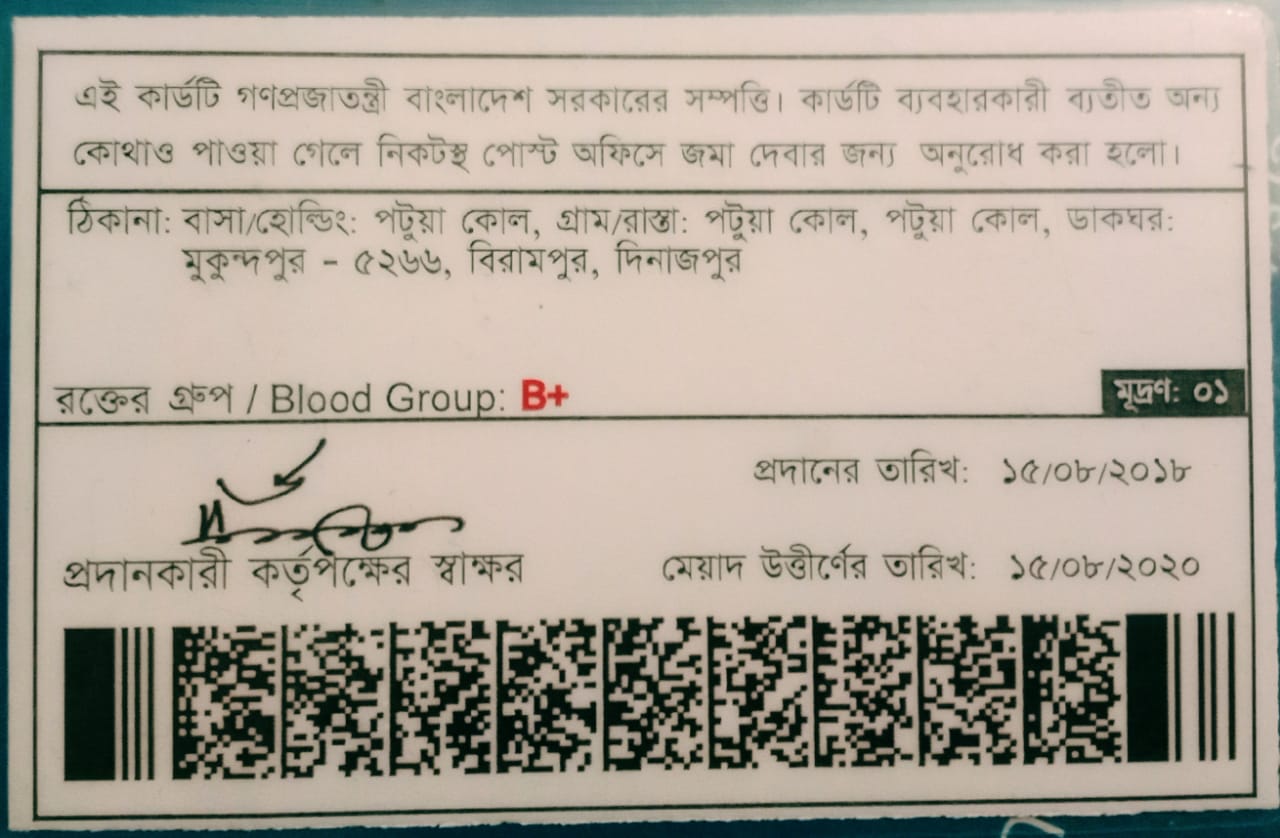 এই কার্ডটি গণপ্রজাতন্ত্রী বাংলাদেশ সরকারের সম্পত্তি। কার্ডটি ব্যবহারকারী ব্যতীত অন্য
কোথাও পাওয়া গেলে নিকটস্থ পোস্ট অফিসে জমা দেবার জন্য অনুরোধ করা হলো।
ঠিকানা: বাসা/হোল্ডিং: পটুয়া কোল, গ্রাম/রাস্তা: পটুয়া কোল, পটুয়া কোল, ডাকঘর:
মুকুন্দপুর - ৫২৬৬, বিরামপুর, দিনাজপুর
রক্তের গ্রুপ / Blood Group: B+
মূদ্রণ: ০১
প্রদানের তারিখ: ১৫/০৮/২০১৮
প্রদানকারী কর্তৃপক্ষের স্বাক্ষর
মেয়াদ উত্তীর্ণের তারিখ: ১৫/০৮/২০২০